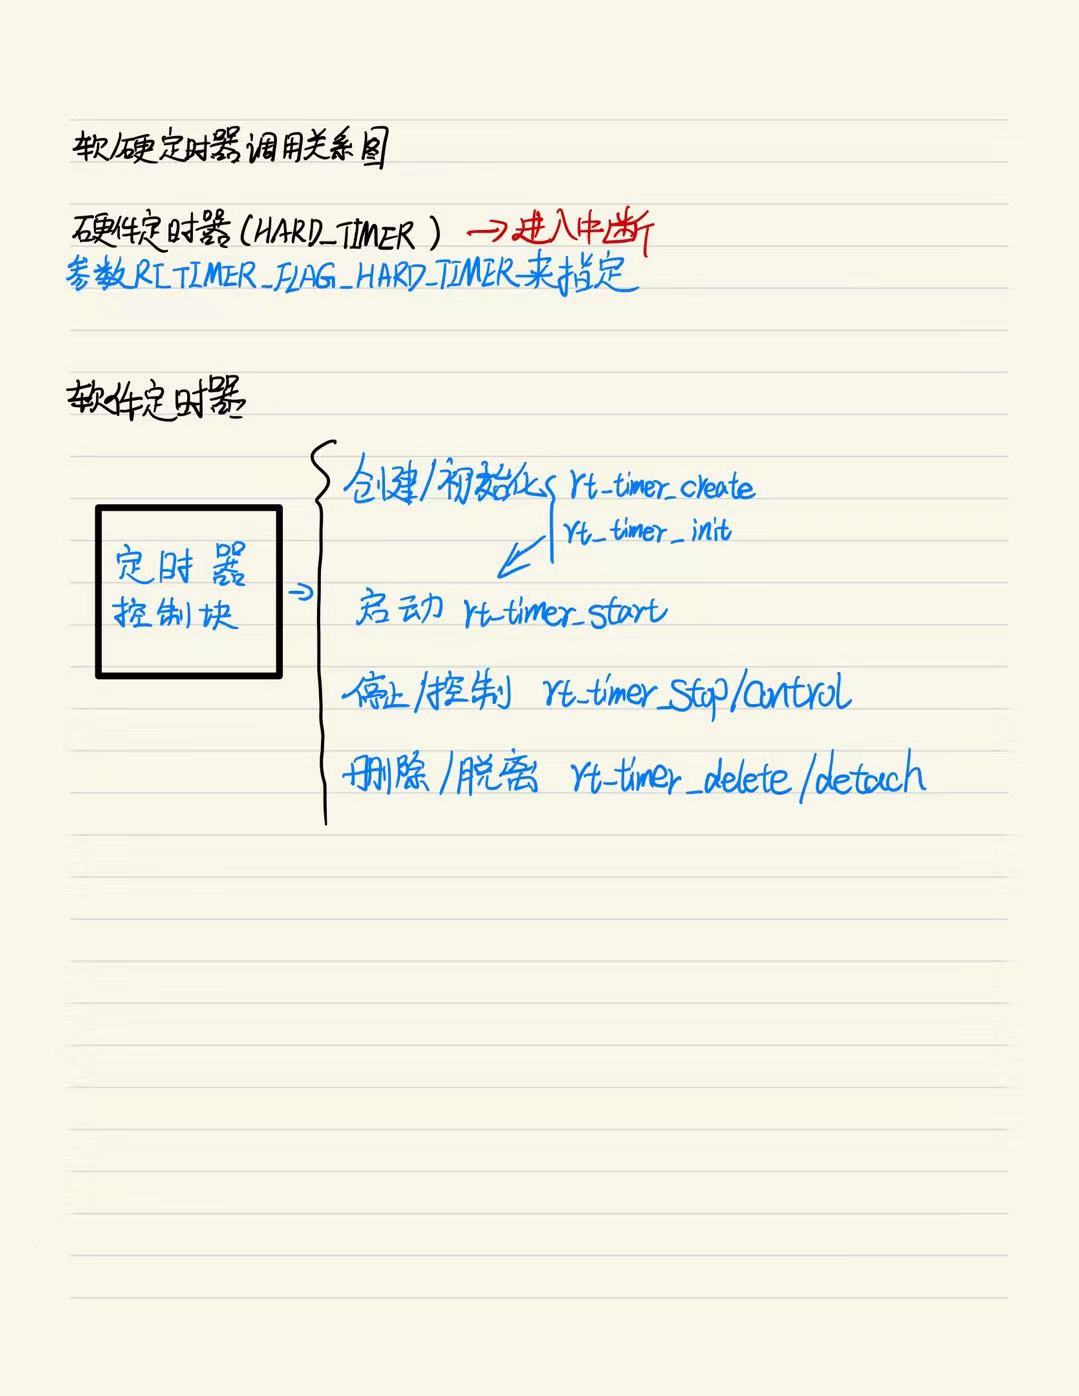 软/硬定时器调用关系图
硬件定时器(HARD_TIMER) →进入中断
参数RT_TIMER_FLAG_HARD_TIMER来指定
软件定时器
定时器
控制块
→
创建/初始化 rt_timer_create
rt_timer_init
启动 rt_timer_start
停止/控制 rt_timer_stop/control
删除/脱离 rt_timer_delete/detach